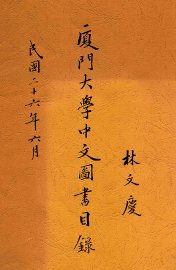 林文慶
厦門大學中文圖書目錄
民國二十六年六月